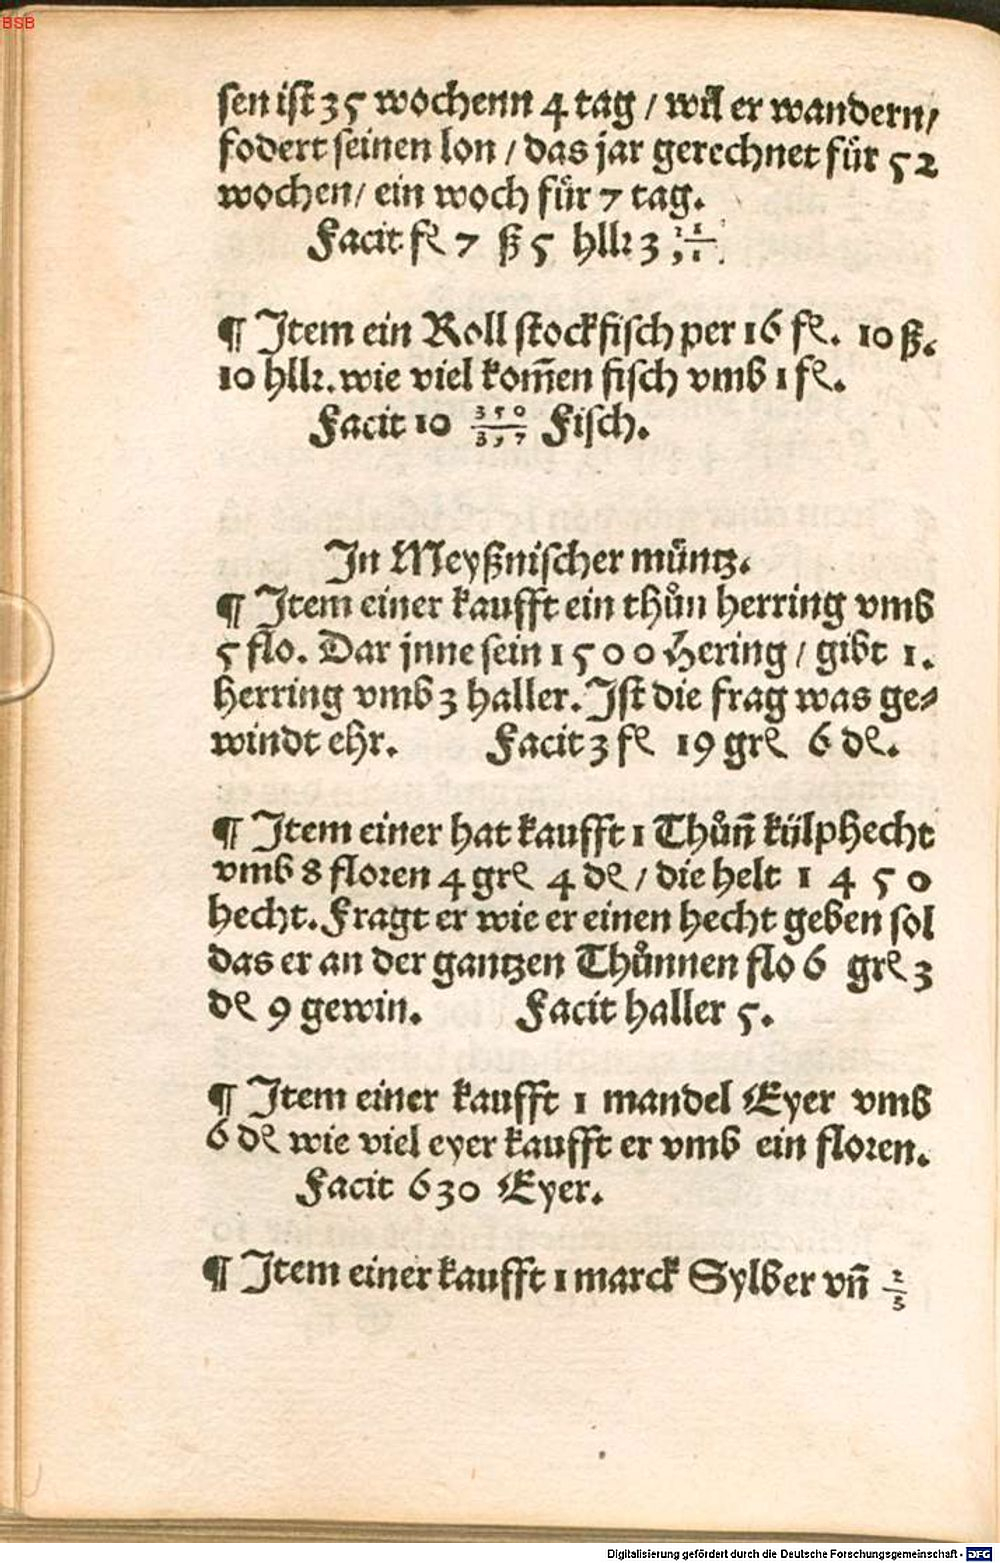 BSB
sen ist 35 wochenn 4 tag / wil er wandern/
fodert seinen lon / das jar gerechnet für 52
wochen/ ein woch für 7 tag.
Facit fl 7 ß 5 hllr 3
¶ Item ein Roll stockfisch per 16 fl. 10 ß.
10 hllr. wie viel kom̃en fisch vmb 1 fl.
Facit 10 350/397 Fisch.
In Meyßnischer müntz.
¶ Item einer kaufft ein thůn herring vmb
5 flo. Dar jnne sein 1500 Hering / gibt 1.
herring vmb 3 haller. Ist die frag was ge⸗
windt ehr. Facit 3 fl 19 grl 6 dl.
¶ Item einer hat kaufft 1 Thůn̄ külphecht
vmb 8 floren 4 grl 4 dl / die helt 1450
hecht. Fragt er wie er einen hecht geben sol
das er an der gantzen Thůnnen flo 6 grl 3
dl 9 gewin. Facit haller 5.
¶ Item einer kaufft 1 mandel Eyer vmb
6 dl wie viel eyer kaufft er vmb ein floren.
Facit 630 Eyer.
¶ Item einer kaufft 1 marck Sylber vn̄ 2/3
Digitalisierung gefördert durch die Deutsche Forschungsgemeinschaft - DFG